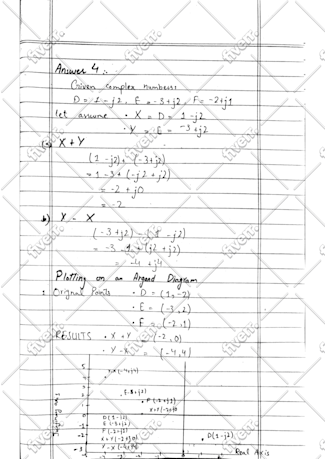 Answer 4 :-
Given complex numbers:
D = 1 - j2, E = -3+j2, F = -2+j1
let assume • X = D = 1 - j2
• Y = E = -3+j2
(a) X + Y
(1 - j2) + (-3+j2)
= 1 - 3 + (-j2 + j2)
= -2 + j0
= -2
b) Y - X
(-3 + j2) - (1 - j2)
= -3 - 1 + (j2 + j2)
= -4 + j4
Plotting on an Argand Diagram
1. Orignal Points • D = (1, -2)
• E = (-3, 2)
• F = (-2, 1)
RESULTS • X + Y = (-2, 0)
• Y - X = (-4, 4)
Y-X (-4+j4)
E(-3+j2)
F (-2+j1)
X+Y (-2+j0)
D(1-j2)
E (-3+j2)
F (-2+j1)
X+Y (-2+j0)
D(1-j2)
Real Axis
fiverr